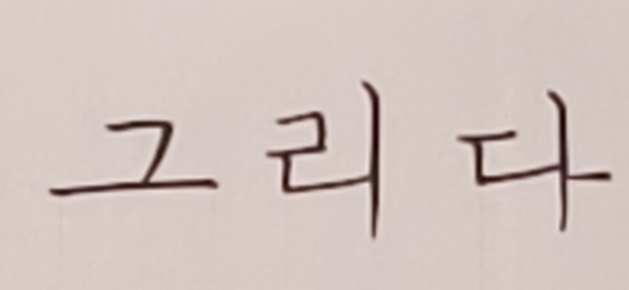 그리다